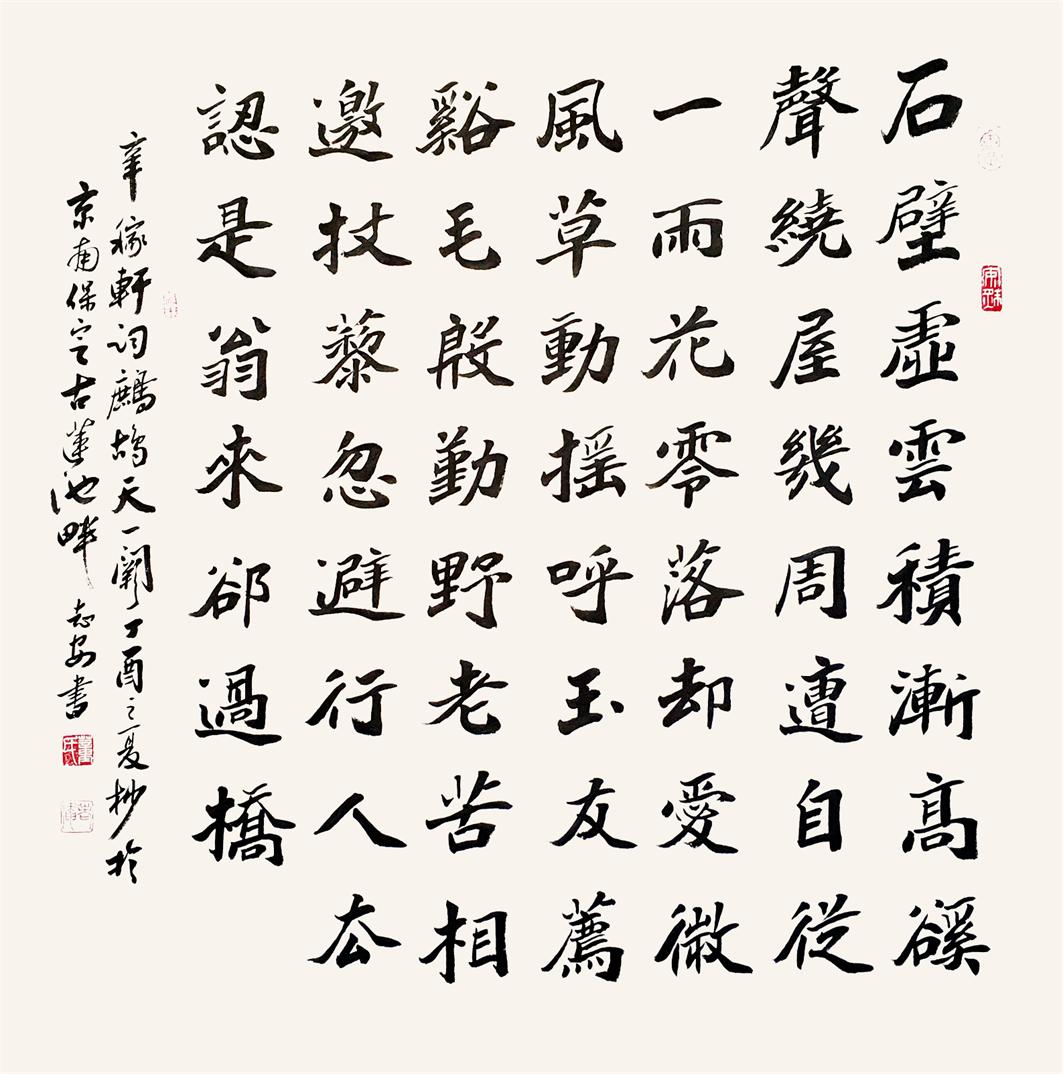 石壁虛雲積漸高磎
聲繞屋幾周遭自從
一雨花零落却愛微
風草動搖呼玉友薦
谿毛殷勤野老苦相
邀杖藜忽避行人去
認是翁來卻過橋
辛稼軒詞鷓鴣天一闋丁酉之夏杪於
京南保定古蓮池畔志安書